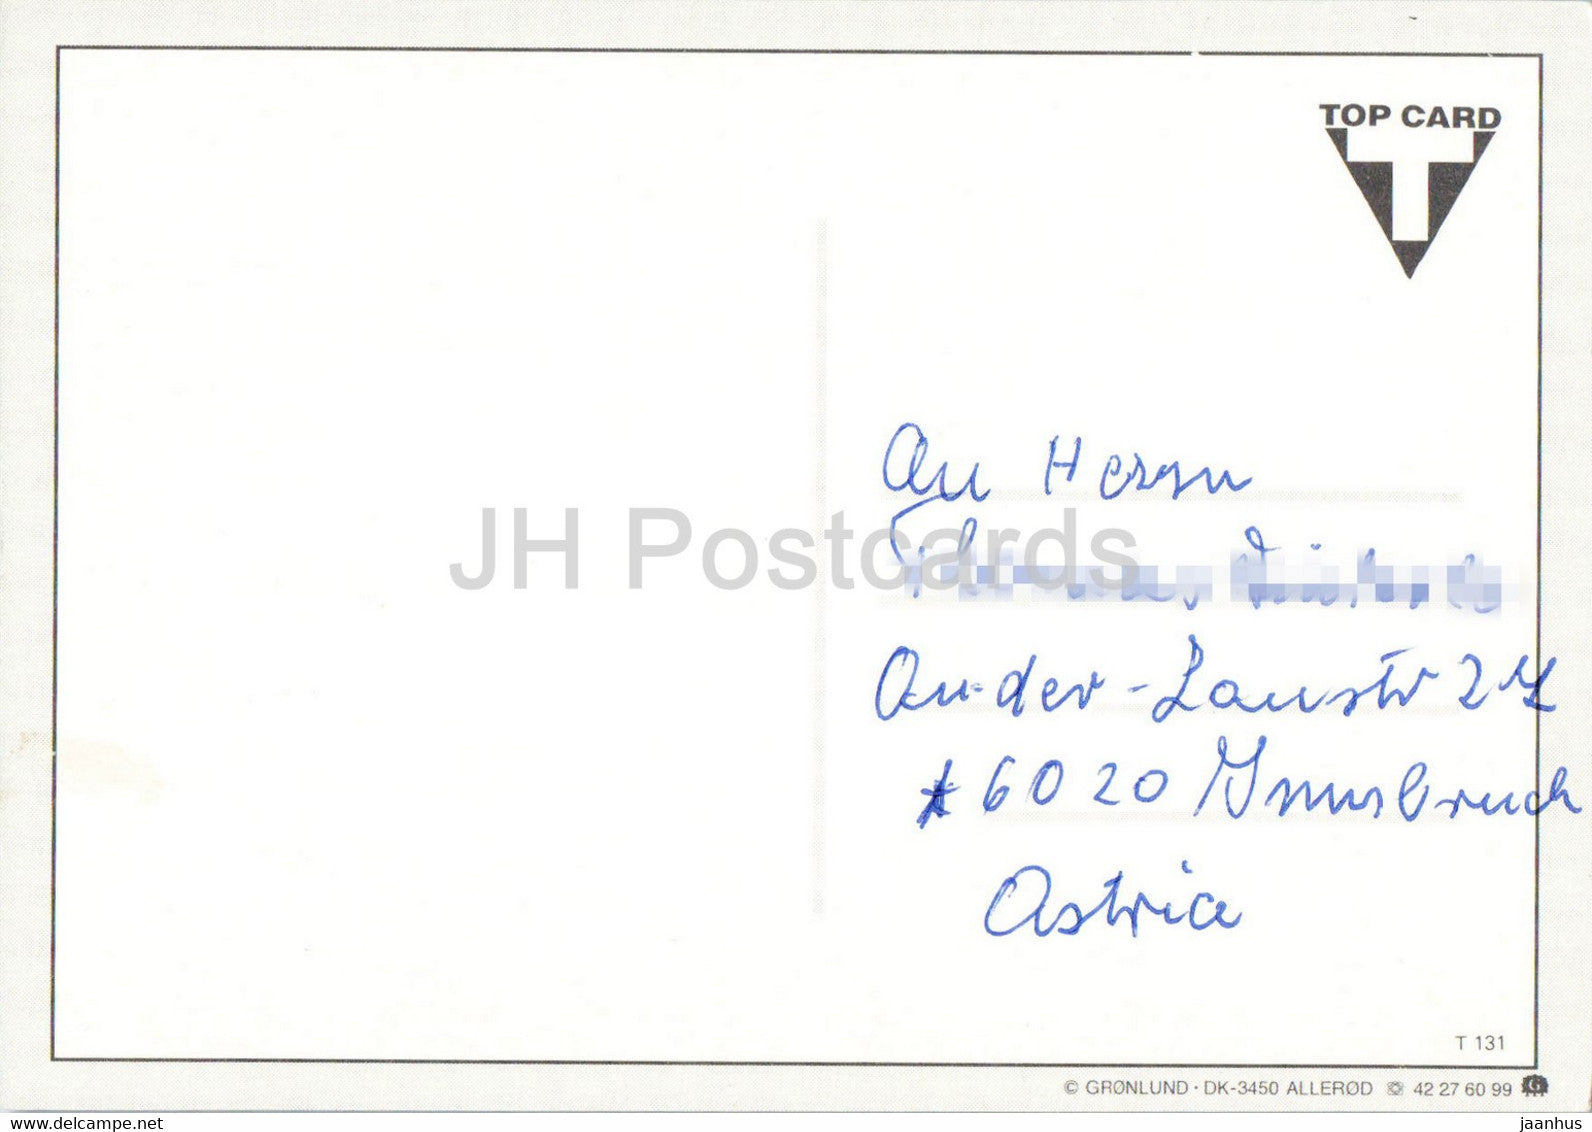 TOP CARD
T
An Herrn
An-der-Lanstr
6020 Innsbruck
Astria
JH Postcards
T 131
© GRØNLUND · DK-3450 ALLERØD ☏ 42 27 60 99
www.delcampe.net
jaanhus